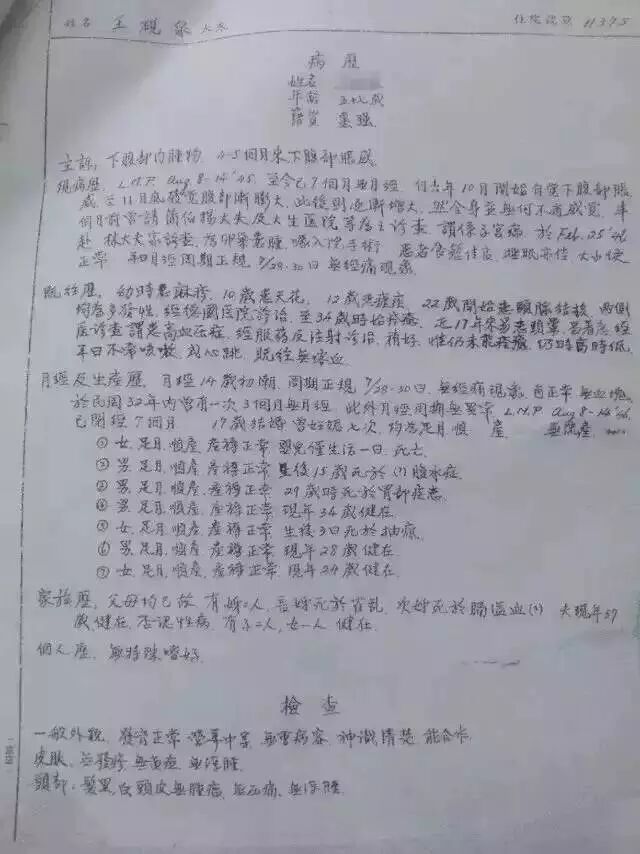 姓名 王砚泉太太 住院號數 11375
病歷
姓名
年齡 五十八歲
籍貫 墨强
主訴, 下腹部内腫物, 4-5個月来下腹部脹感
現病歷, L.M.P. Aug 8-14 '45, 至今已7個月無月經, 何去年10月開始自覺下腹部脹
感 至11月底發覺腹部漸膨大, 此後則逐漸增大, 然全身並無何不適感覺, 半
個月前曾請 大夫及大生医院等诊查 謂係子宫瘤, 於Feb. 25 '46
赴 林大夫家診查, 為卵巢囊腫, 囑入院手術 患者食慾佳良, 睡眠亦佳 大小便
正常 月經周期正規 7/28-30日 無經痛現象.
既往歷, 幼時患麻疹, 10歲患天花, 12歲患瘧疾, 22歲開始患頸腺結核, 兩側
經德國医院診治, 至34歲時始痊癒, 近17年来
診查謂患高血压症, 經服药及注射診治, 稍好, 惟仍未能痊癒, 仍時高時低,
平日不常咳嗽 心跳, 既往無嗽血
月經及生産歷, 月經14歲初潮, 周期正規 7/28-30日, 無經痛現象, 色正常 無血塊,
於民国32年内曾有一次3個月無月經, 此外月經周期無異常 L.M.P. Aug 8-14 '45,
已閉經7個月 17歲結婚 曾妊娠七次, 均為足月順産, 無流産,
① 女, 足月, 順産, 産褥正常 嬰兒僅生活一日 死亡
② 男, 足月, 順産, 産褥正常 生後15歲死於(?)腹水症.
③ 男, 足月, 順産, 産褥正常 29歲時死於胃部疾患.
④ 男, 足月, 順産, 産褥正常 現年34歲健在.
⑤ 女, 足月, 順産, 産褥正常 生後3日死於抽瘋.
⑥ 男, 足月, 順産, 産褥正常 現年28歲健在.
⑦ 女, 足月, 順産, 産褥正常 現年24歲健在.
家族歷, 父母均已故 有姊二人, 長姊死於霍乱, 次姊死於腦溢血(?) 夫現年59
歲健在, 否認性病, 有子二人, 女一人 健在.
個人歷, 無特殊嗜好.
檢查
一般外觀, 發育正常 營養中等 無重病容 神識清楚 能合作
皮膚, 無發疹 無黄疸 無浮腫
頭部: 髮黑白 頭皮無腫瘤, 無压痛, 無浮腫.